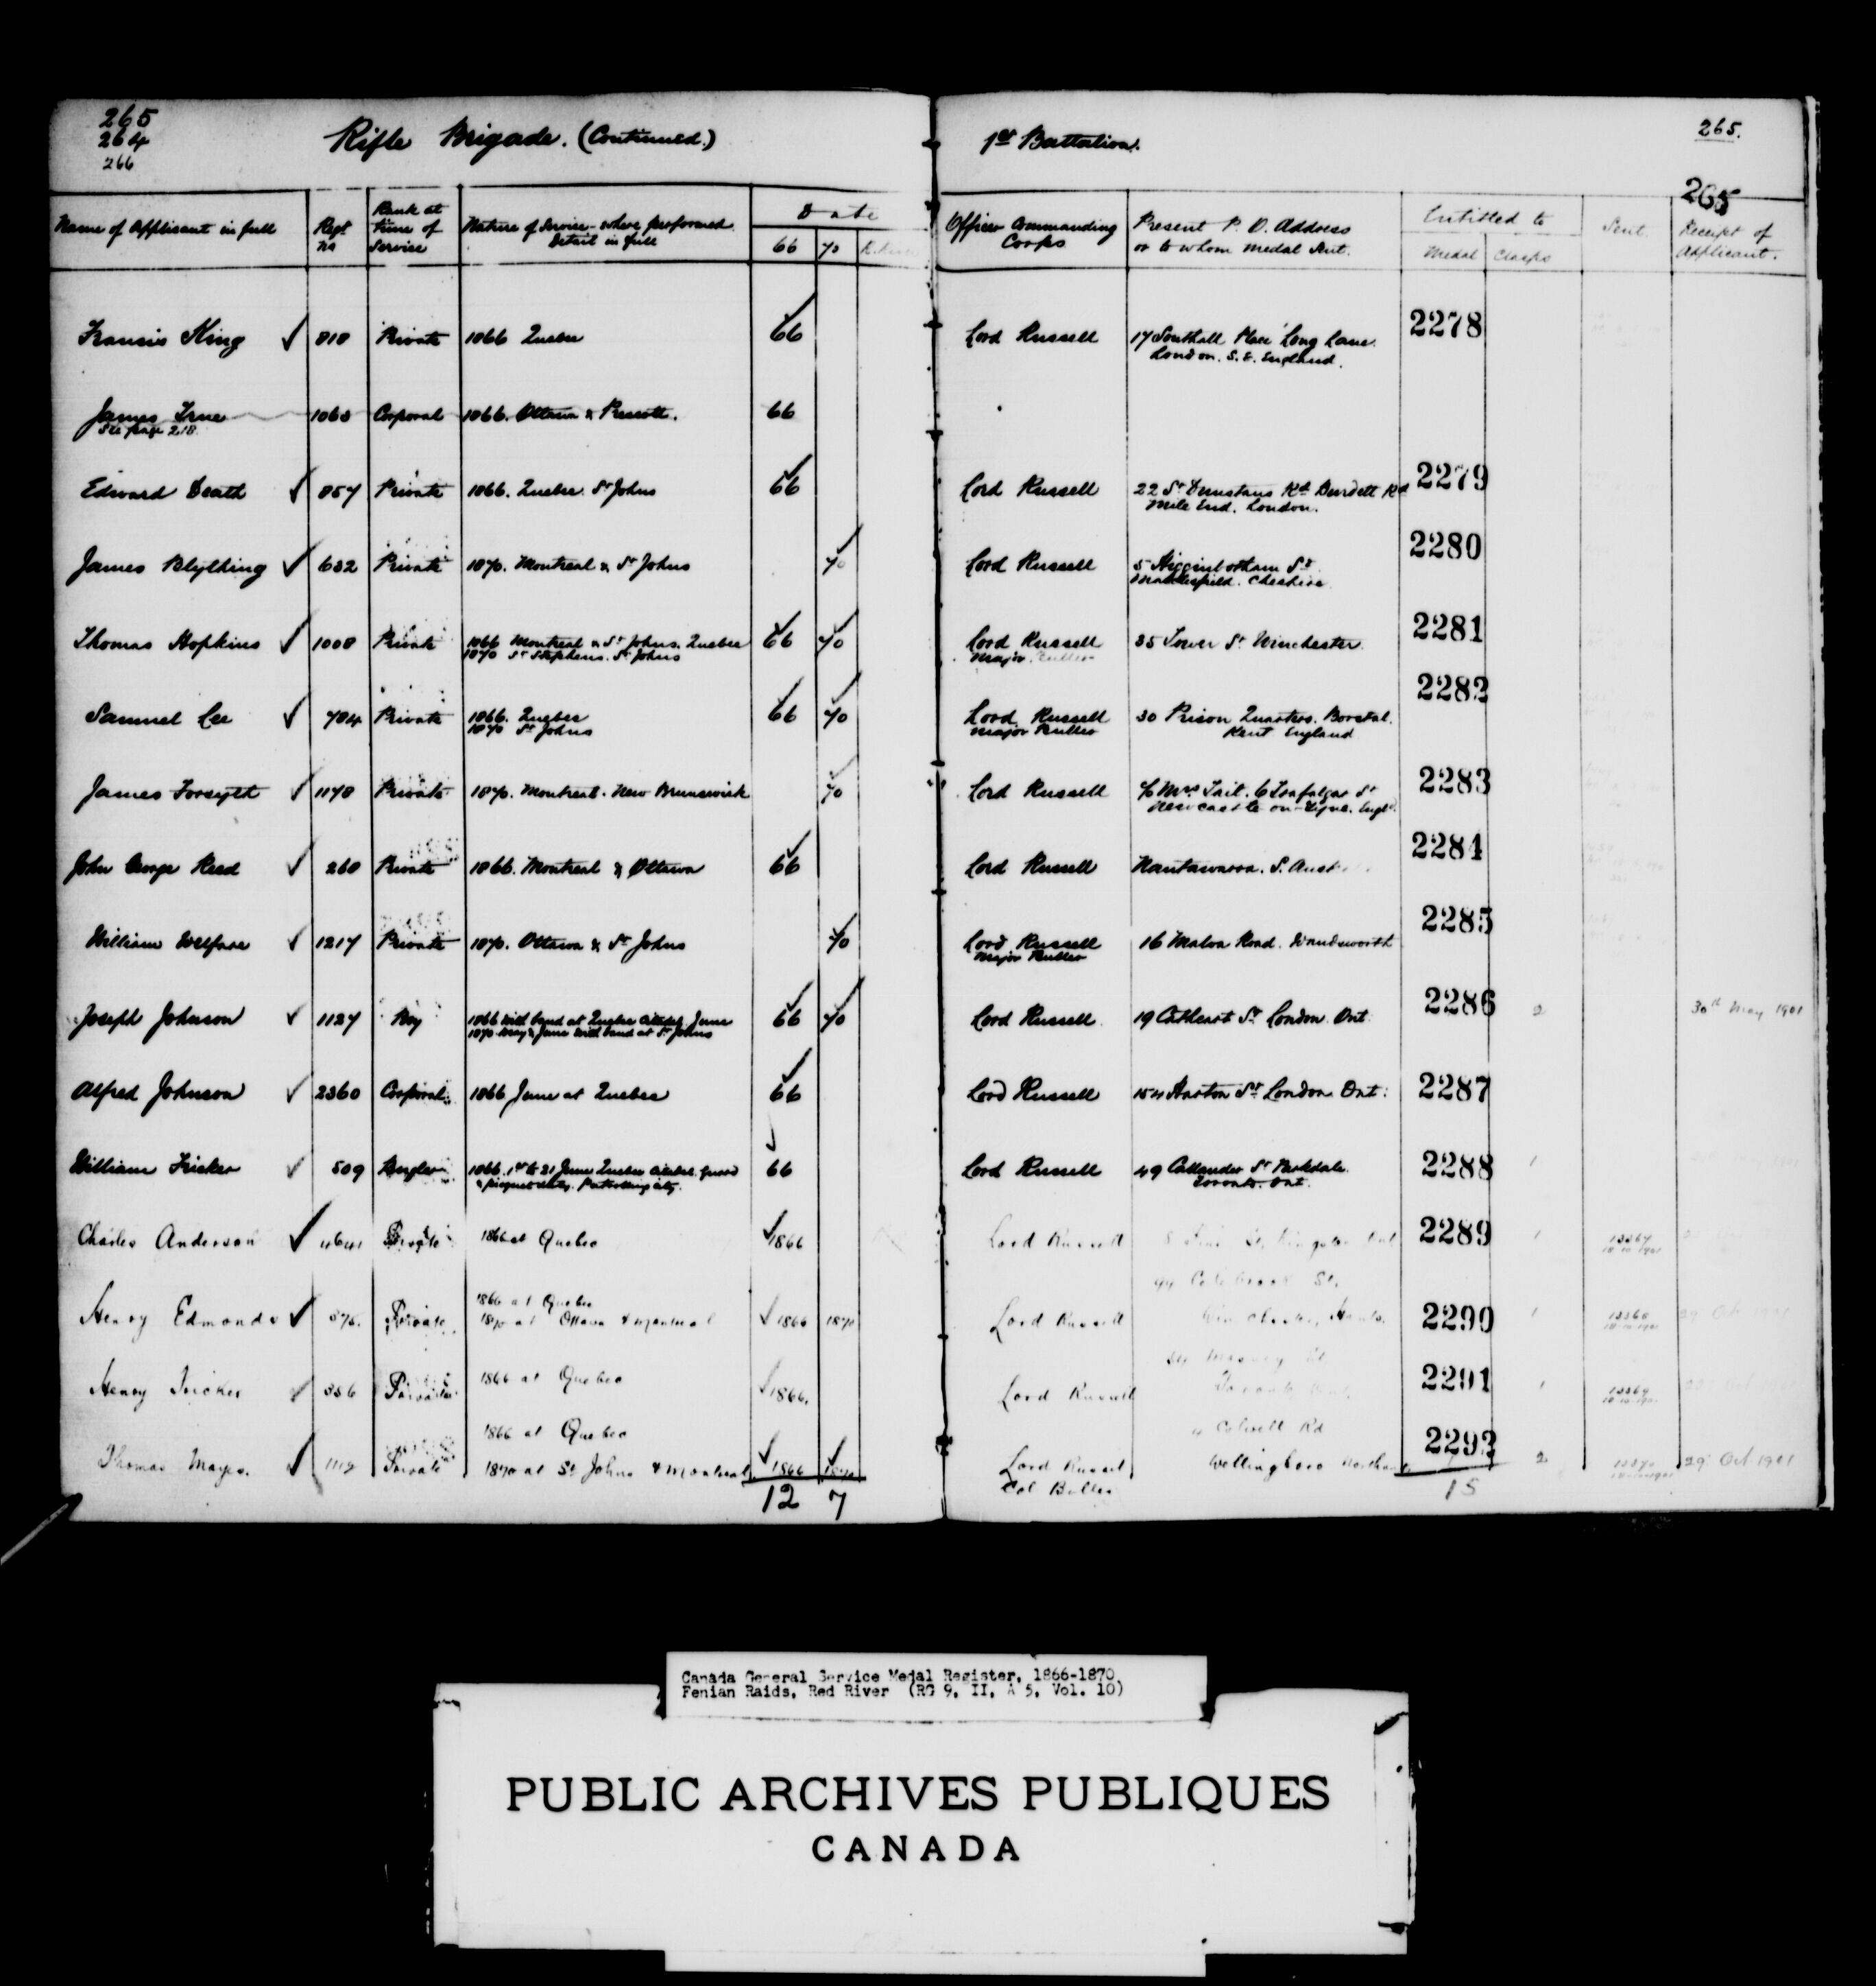 265
264
266
Rifle Brigade. (Continued.)
1st Battalion.
265.
265
Name of Applicant in full Regt No Rank at time of Service Nature of Service - where performed Detail in full Date 66 70
Officer Commanding Corps Present P. O. Address or to whom medal Sent. Entitled to Medal Clasps Sent. Receipt of Applicant.
Francis King ✓ 818 Private 1866 Quebec 66 Lord Russell 17 Southall Place Long Lane. 2278
London. S.E. England.
James True 1063 Corporal 1866. Ottawa & Prescott. 66
See page 218
Edward Death ✓ 857 Private 1866. Quebec. St Johns 66 Lord Russell 22 St Dunstans Rd Burdett Rd 2279
Mile End. London.
James Blything ✓ 632 Private 1870. Montreal & St Johns 70 Lord Russell 5 Higginbotham St 2280
Macclesfield. Cheshire
Thomas Hopkins ✓ 1008 Private 1866 Montreal & St Johns. Quebec 66 70 Lord Russell 35 Tower St Winchester. 2281
1870 St Stephens. St Johns Major Buller
Samuel Lee ✓ 784 Private 1866. Quebec 66 70 Lord Russell 30 Prison Quarters. Borstal. 2282
1870 St Johns Major Buller Kent England
James Forsyth ✓ 1178 Private 1870. Montreal. New Brunswick 70 Lord Russell c/o Mrs Tait. 6 Trafalgar St 2283
Newcastle-on-Tyne. Engld.
John George Reed ✓ 260 Private 1866. Montreal & Ottawa 66 Lord Russell Nantawarra. S. Aust 2284
William Welfare ✓ 1217 Private 1870. Ottawa & St Johns 70 Lord Russell 16 Malva Road. Wandsworth 2285
Major Buller
Joseph Johnson ✓ 1127 Boy 1866 With band at Quebec Citadel June 66 70 Lord Russell 19 Cathcart St London. Ont. 2286 2 30th May 1901
1870 May & June With band at St Johns
Alfred Johnson ✓ 2360 Corporal 1866 June at Quebec 66 Lord Russell 154 Horton St London Ont. 2287
William Fricker ✓ 509 Bugler 1866. 1st to 21 June Quebec Citadel. Guard 66 Lord Russell 49 Callander St Parkdale. 2288 1
& picquet duty. Patrolling city. Toronto. Ont.
Charles Anderson ✓ 4641 Private 1866 at Quebec ✓1866 Lord Russell St, Kingston Ont 2289 1 13367
Henry Edmonds ✓ 876. Private 1866 at Quebec ✓1866 1870 Lord Russell 99 Colebrook St. 2290 1 13368 29 Oct 1901
1870 at Ottawa & Montreal Winchester, Hants.
Henry Fricker ✓ 336 Private 1866 at Quebec ✓1866. Lord Russell St 2291 1 13369
Toronto Ont
Thomas Mayes. ✓ 1119 Private 1866 at Quebec ✓1866 1870 Lord Russell Colwell Rd 2292 2 13370 29 Oct 1901
1870 at St Johns & Montreal Col Buller Wellingboro Northants
12 7 15
Canada General Service Medal Register, 1866-1870.
Fenian Raids, Red River (RG 9, II, A 5, Vol. 10)
PUBLIC ARCHIVES PUBLIQUES
CANADA